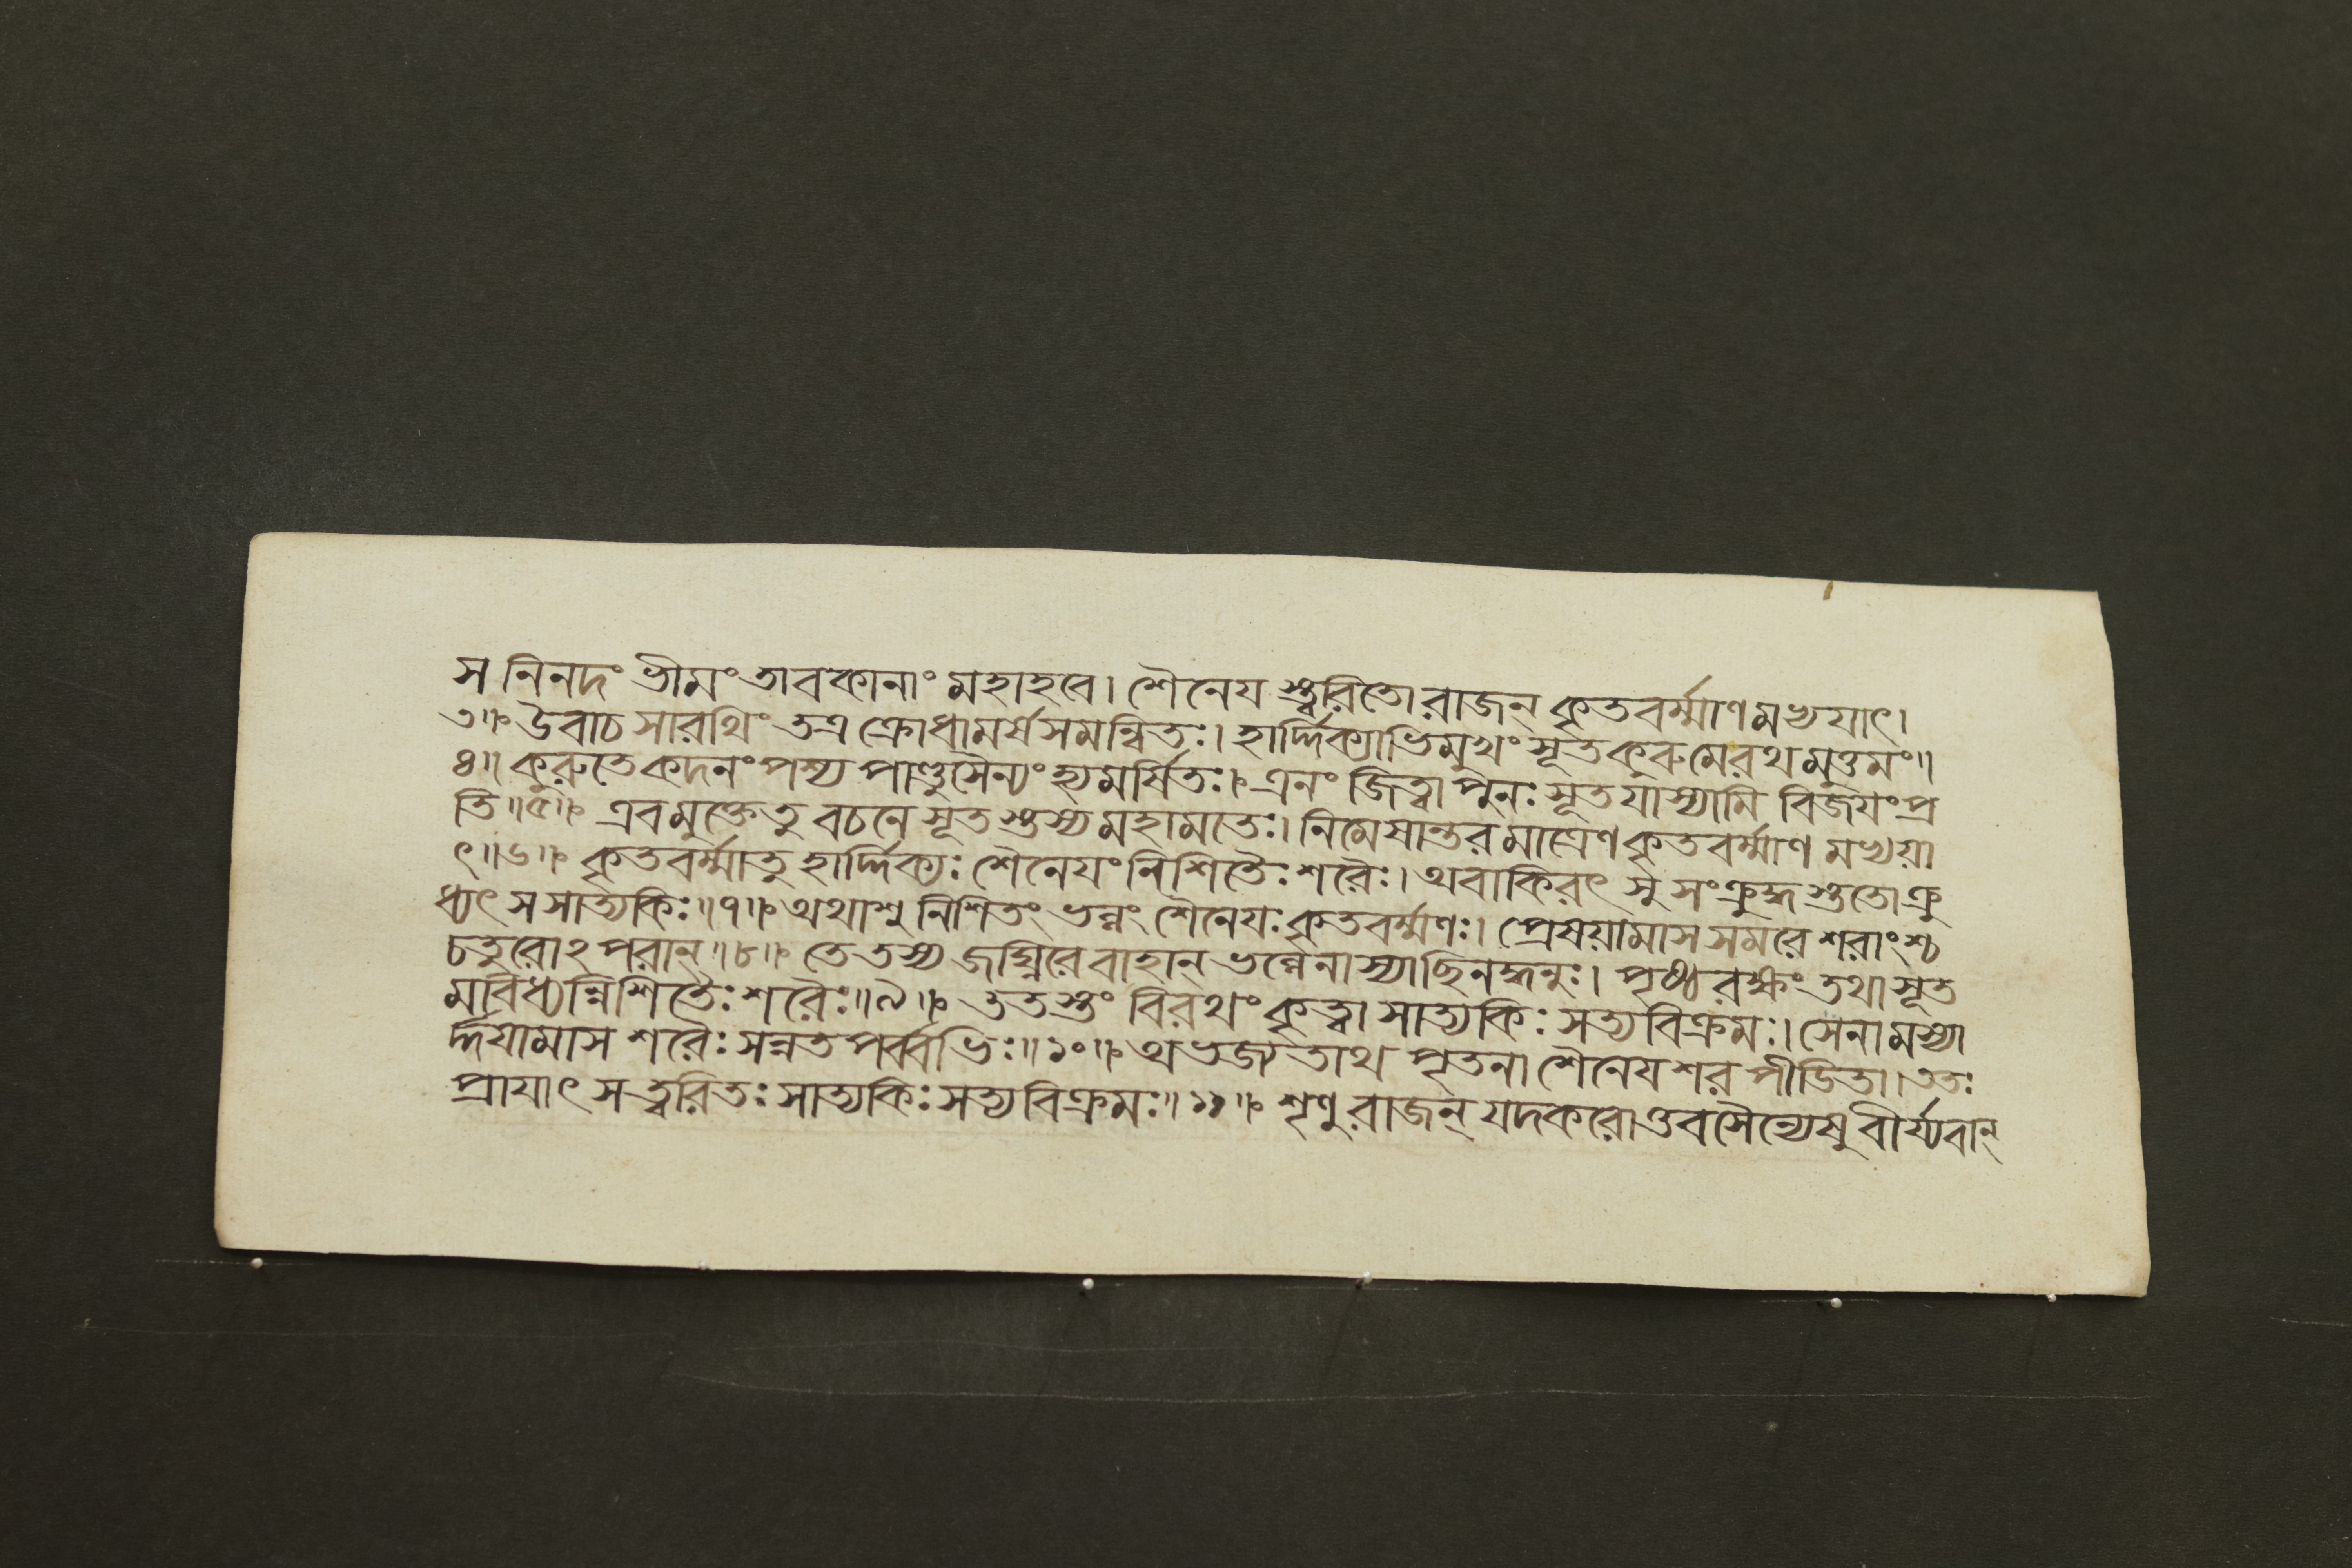 স নিনদং ভীমং তাবকানাং মহাহবে। শৈনেয স্ত্বরিতো রাজন্ কৃতবর্ম্মাণ মভ্যযাৎ।
৩॥ উবাচ সারথিং তত্র ক্রোধামর্ষসমন্বিতঃ। হার্দ্দিক্যাভিমুখং সূত কুরু মে রথ মুত্তমং॥
৪॥ কুরুতে কদনং পশ্য পাণ্ডুসৈন্যং হ্যমর্ষিতঃ। এনং জিত্বা পুনঃ সূত যাস্যামি বিজযং প্র
তি॥৫॥ এবমুক্তে তু বচনে সূত স্তস্য মহামতেঃ। নিমেষান্তর মাত্রেণ কৃতবর্ম্মাণ মভ্যয়া
ৎ॥৬॥ কৃতবর্ম্মা তু হার্দ্দিক্যঃ শৈনেযং নিশিতৈঃ শরৈঃ। অবাকিরৎ সু সংক্রুদ্ধ স্ততো ক্রু
ধ্যৎ স সাত্যকিঃ॥৭॥ অথাশু নিশিতং ভল্লং শৈনেযঃ কৃতবর্ম্মণঃ। প্রেষয়ামাস সমরে শরাংশ্চ
চতুরোঽপরান্॥৮॥ তে তস্য জঘ্নিরে বাহান্ ভল্লেনাস্যাছিনদ্ধনুঃ। পৃষ্ঠরক্ষং তথা সূত
মবিধ্যন্নিশিতৈঃ শরৈঃ॥৯॥ ততস্তং বিরথং কৃত্বা সাত্যকিঃ সত্যবিক্রমঃ। সেনামস্যা
র্দ্দযামাস শরৈঃ সন্নতপর্ব্বভিঃ॥১০॥ অভজ্যতাথ পৃতনা শৈনেয শর পীডিতা। ততঃ
প্রাযাৎ স ত্বরিতঃ সাত্যকিঃ সত্যবিক্রমঃ॥১১॥ শৃণু রাজন্ যদকরোত্তব সৈন্যেষু বীর্য্যবান্